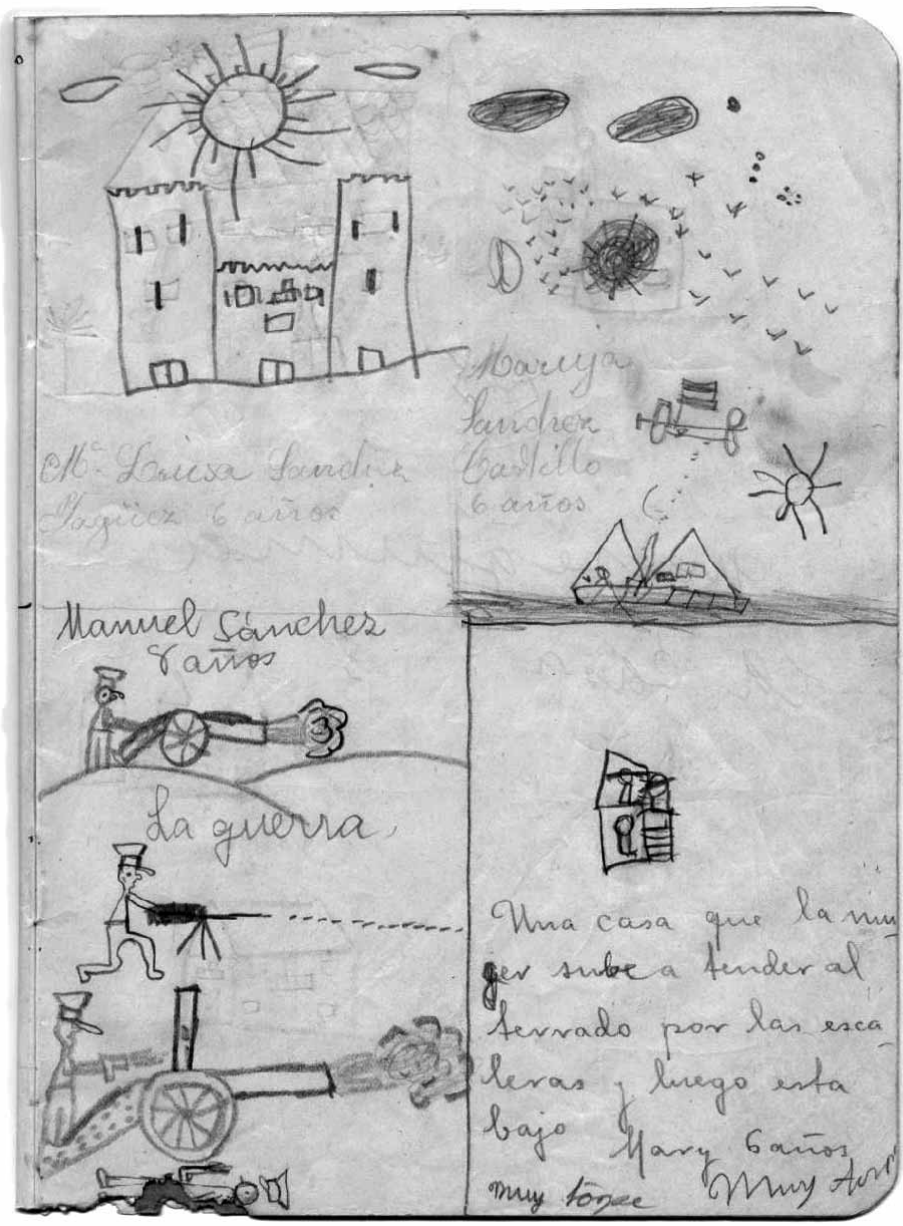 Mª Luisa Sanchez
Yagüez 6 años
Maruja
Sanchez
Castillo
6 años
Manuel Sánchez
8 años
La guerra
Una casa que la mu
ger sube a tender al
terrado por las esca
leras y luego esta
bajo
Mary 6 años
muy
Muy